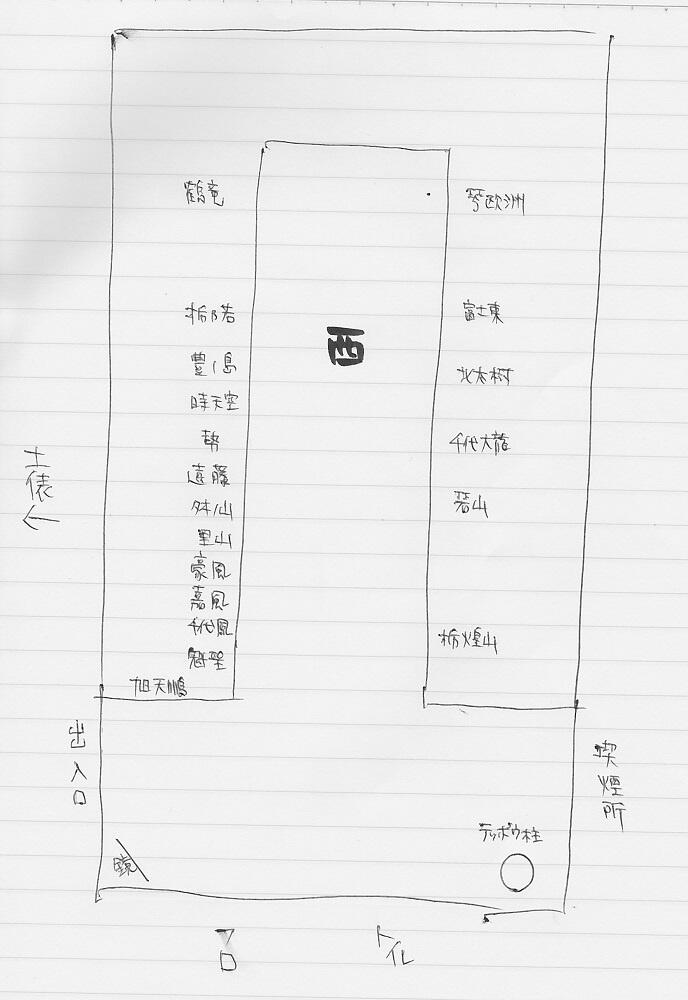 鶴竜
琴欧洲
栃乃若
富士東
西
豊ノ島
北太樹
時天空
勢
千代大龍
土俵←
遠藤
舛ノ山
碧山
里山
豪風
嘉風
千代鳳
栃煌山
魁聖
旭天鵬
出入口
喫煙所
テッポウ柱
鏡
フロ
トイレ